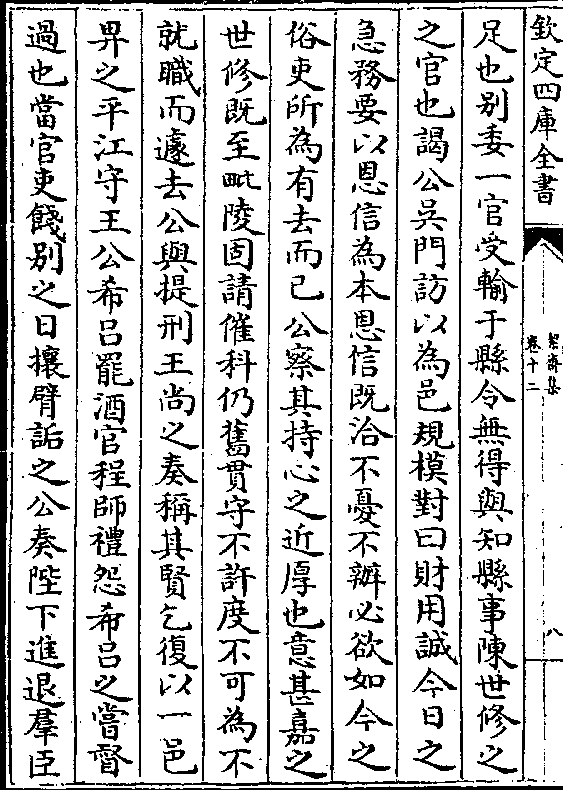 欽定四庫全書
絜齋集
卷十二
八
足也别委一官受輸于縣令無得與知縣事陳世修之
之官也謁公吳門訪以為邑規模對曰財用誠今日之
急務要以恩信為本恩信既洽不憂不辦必欲如今之
俗吏所為有去而已公察其持心之近厚也意甚嘉之
世修既至毗陵固請催科仍舊貫守不許度不可為不
就職而遽去公與提刑王尚之奏稱其賢乞復以一邑
畀之平江守王公希吕罷酒官程師禮怨希吕之嘗督
過也當官吏餞别之日攘臂詬之公奏陛下進退羣臣